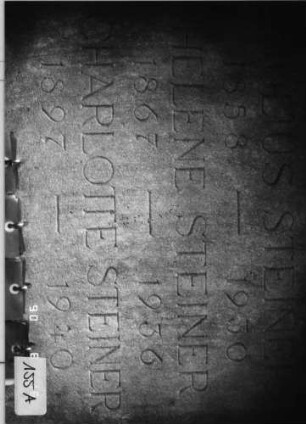 STEINER
1858 — 1930
HELENE STEINER
1867 — 1956
CHARLOTTE STEINER
1897 — 1940
122 A